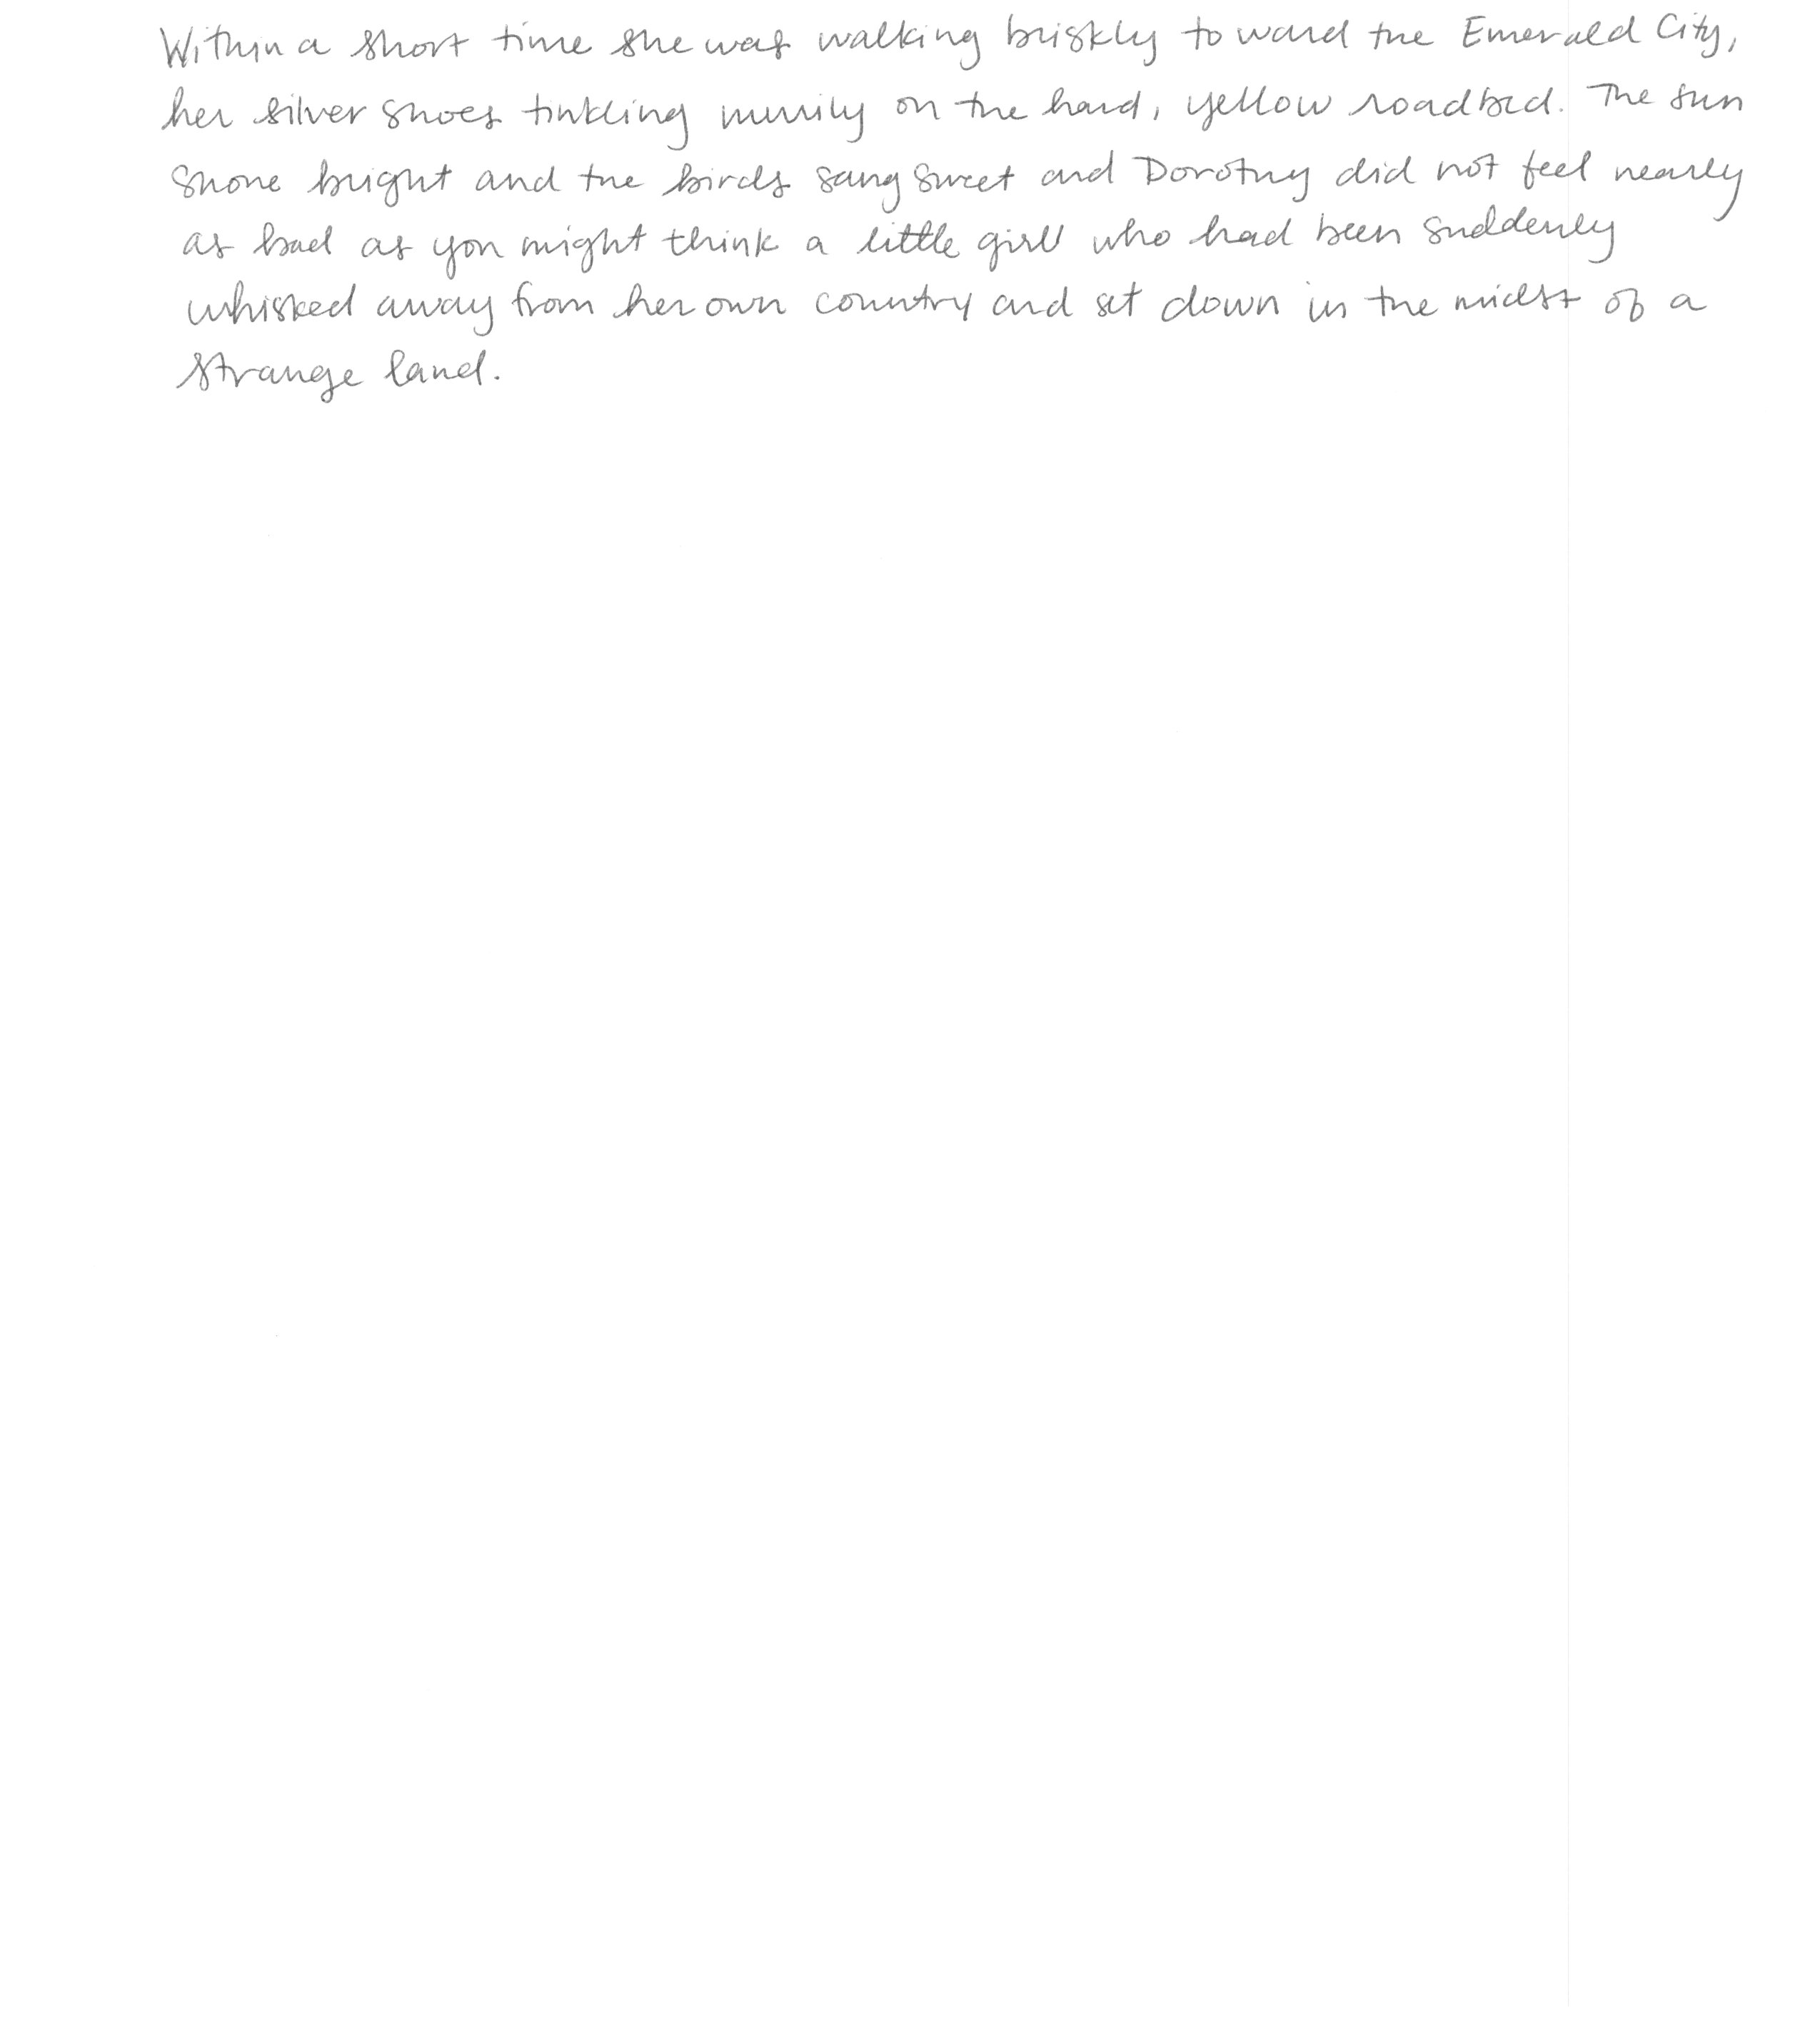 Within a short time she was walking briskly toward the Emerald City,
her silver shoes tinkling merrily on the hard, yellow roadbed. The sun
shone bright and the birds sang sweet and Dorothy did not feel nearly
as bad as you might think a little girl who had been suddenly
whisked away from her own country and set down in the midst of a
strange land.